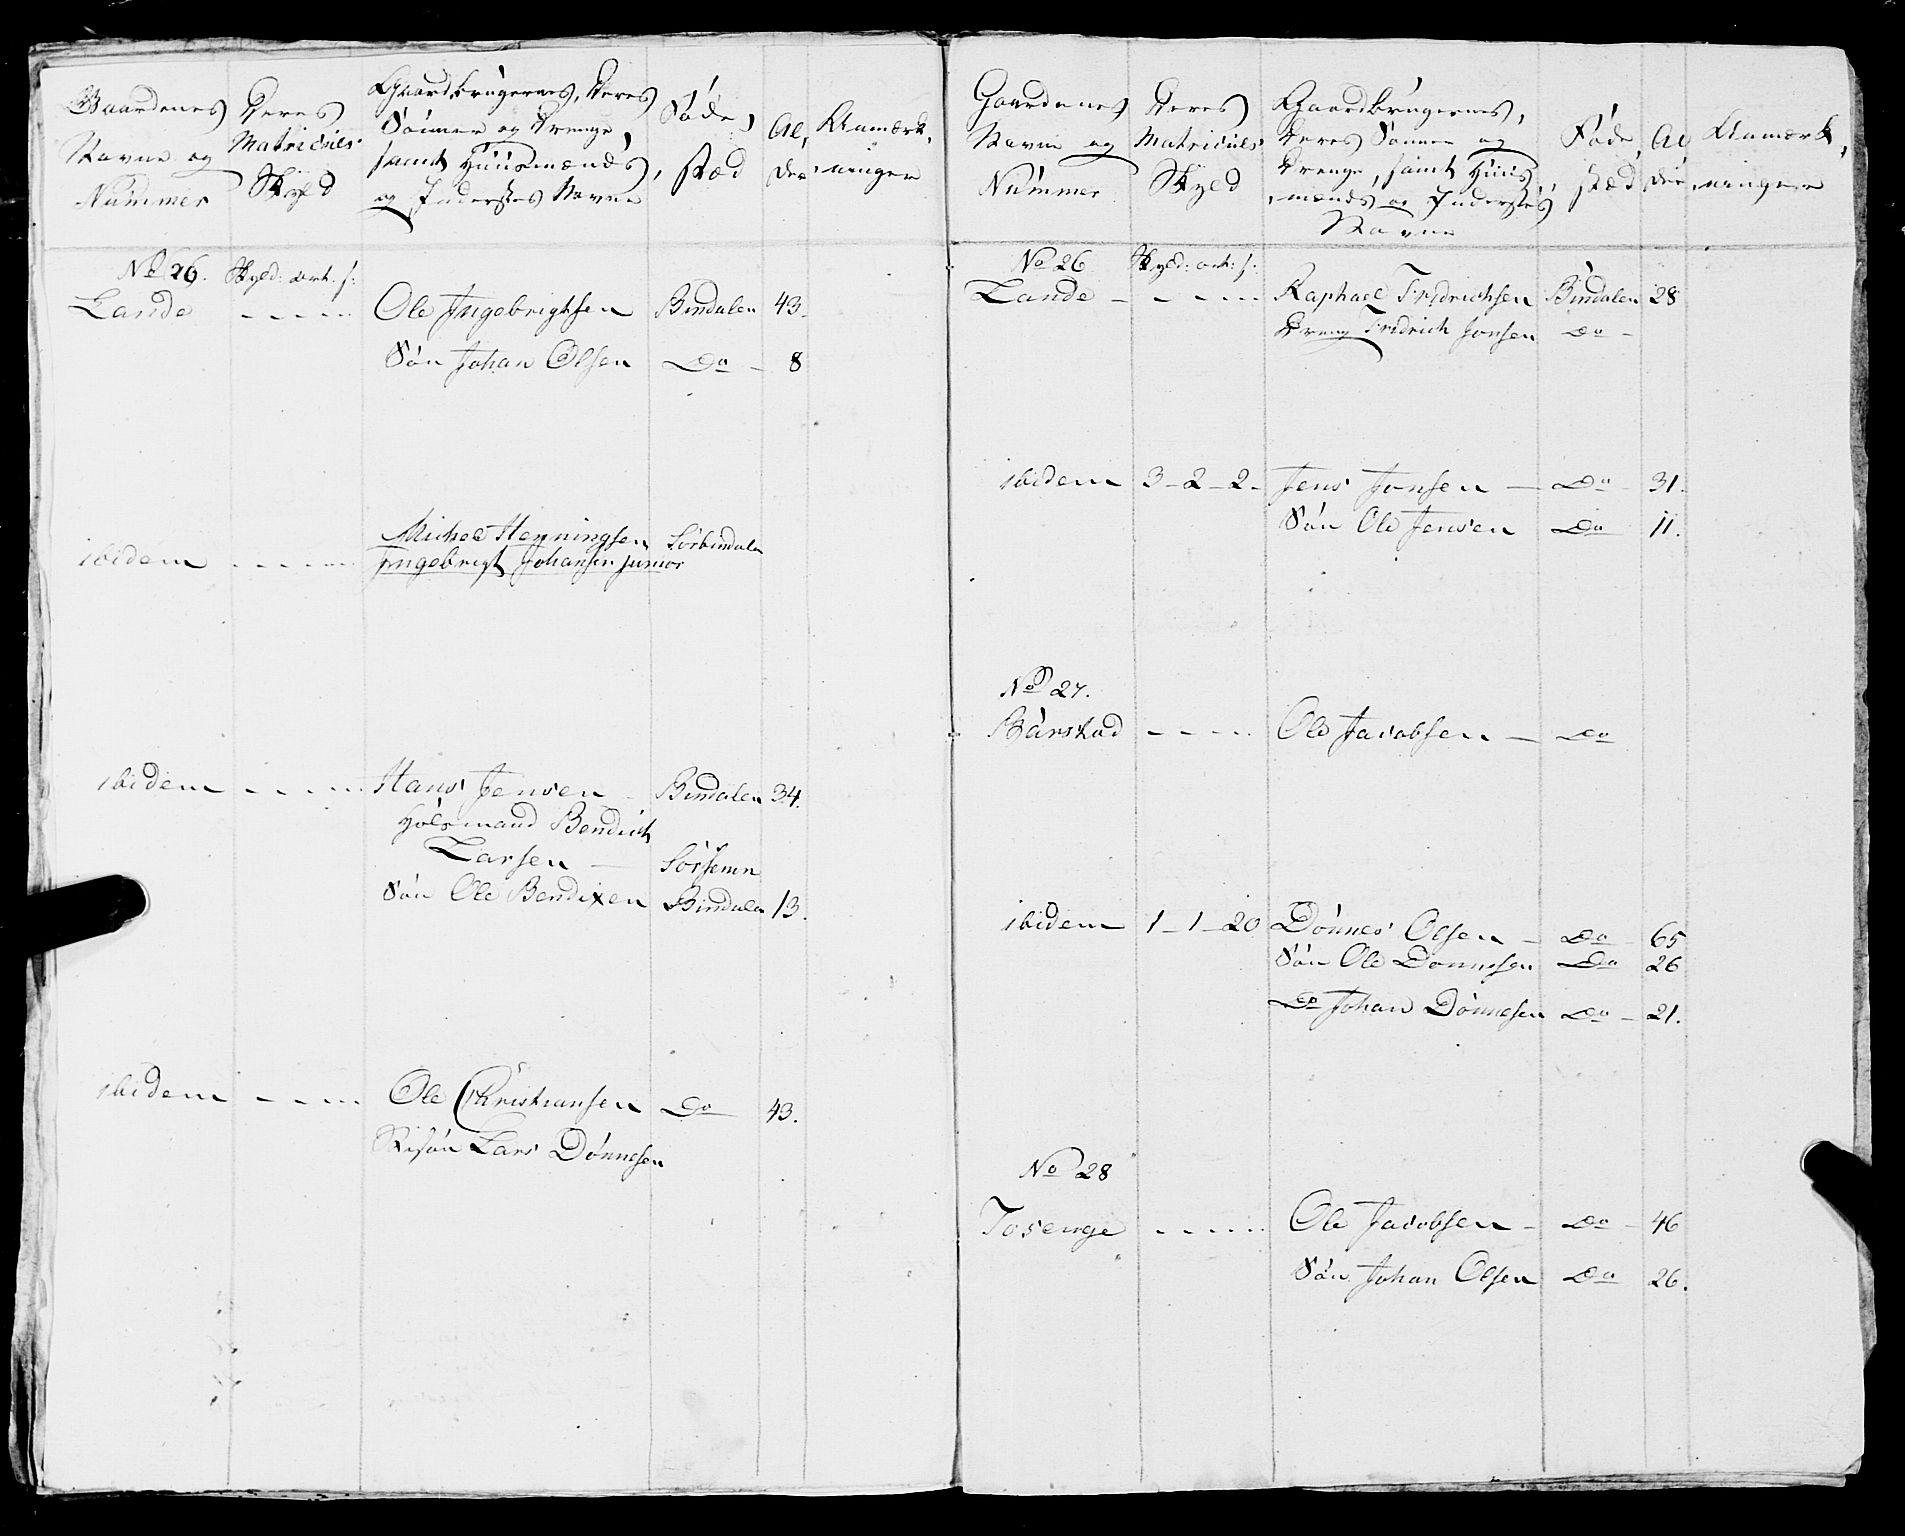 Gaardenes
Navne og
Nummer
Deres
Matriculs
Skyld
Gaardbrugernes, Deres
Sønner og Drenge,
samt Huusmænds,
og Inderstes Navne
Føde,
stæd
Al,
der
Anmærk,
ninger
No 26. Skyld: ort: s:
Lande - - - - - Ole Ingebrigtsen Bindalen 43.
Søn Johan Olsen Do - 8
Michel Henningsen Sørbindalen
ibidem - - - - - Ingebrigt Johansen junior
ibidem - - - - - Hans Jensen - Bindalen 34.
Hølsmand Bendich
Larsen - Sørsemn
Søn Ole Bendixen Bindalen 13.
ibidem - - - - Ole Christiansen Do 43.
Stifsøn Lars Dønnesen
Gaardenes
Navne og
Nummer
Deres
Matriculs
Skyld
Gaardbrugernes,
Deres Sønner og
Drenge, samt Huus,
mænds og Inderstes
Navne
Føde,
stæd
Al
der
Anmærk,
ninger
No 26 Skyld: ort: s:
Lande - - - - - Raphael Fridrichsen Bindalen 28
Dreng Fridrich Jonsen Do -
ibidem 3 - 2 - 2 - Jens Jonsen - Do - 31.
Søn Ole Jensen Do 11.
No 27.
Bårstad - - - - Ole Jacobsen - Do
ibidem 1 - 1 - 20 Dønnes Olsen - Do - 65
Søn Ole Dønnesen Do 26
Do Johan Dønnesen Do - 21.
No 28
Tosenge - - - - - Ole Jacobsen - Do - 46
Søn Johan Olsen Do 26.